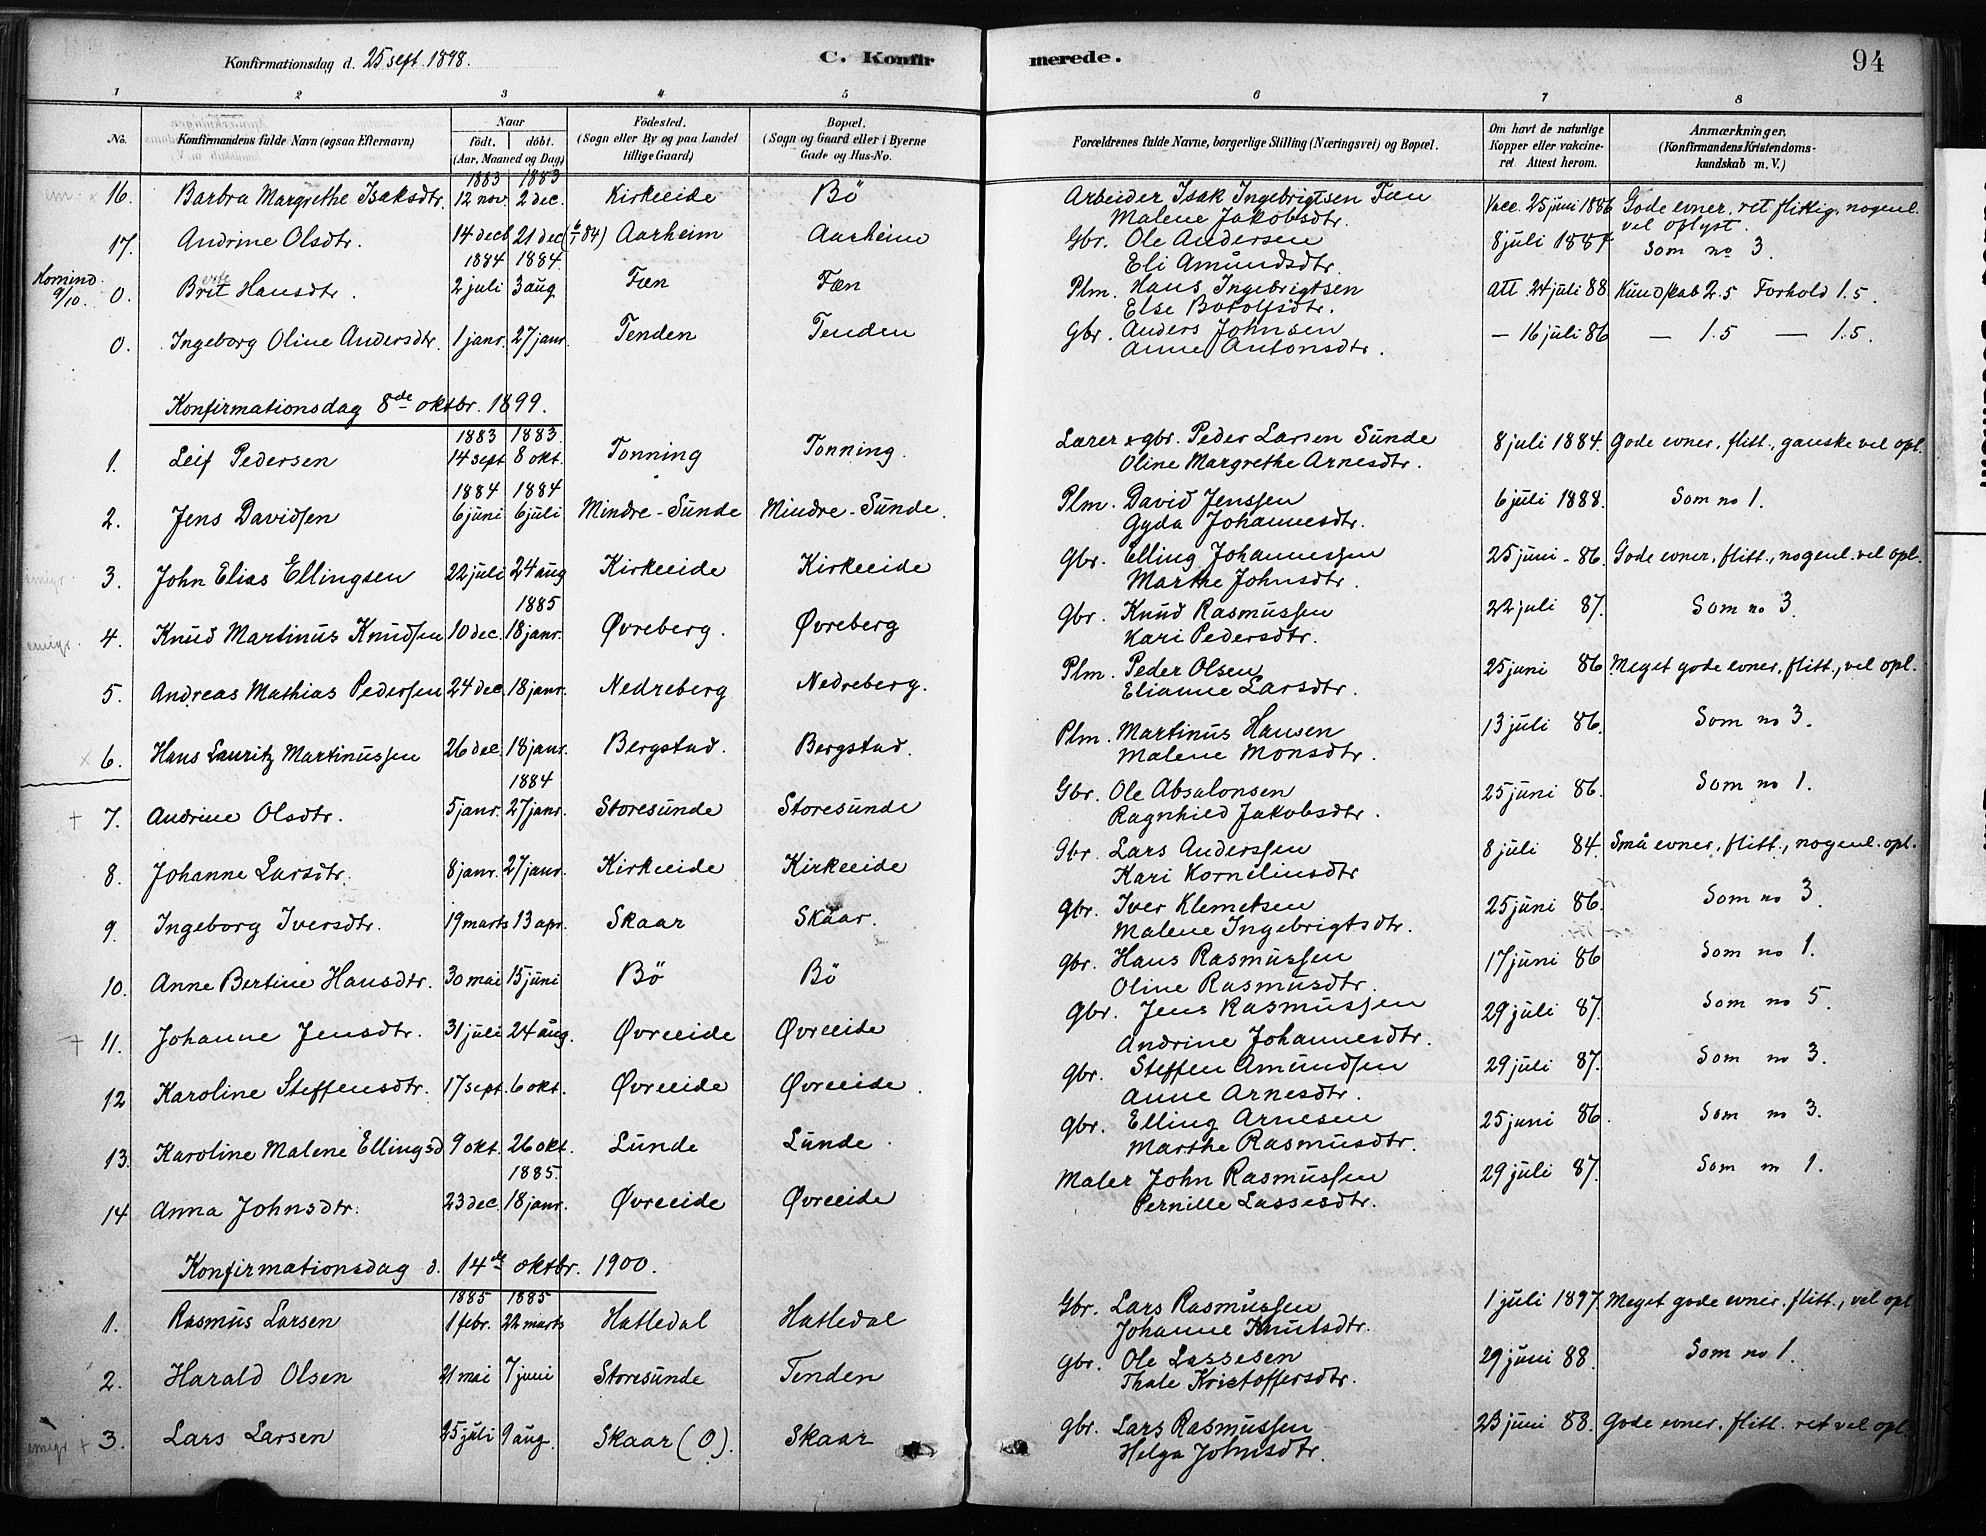 Konfirmationsdag d. 25 sept. 1898.
C. Konfirmerede.
94
1 2 3 4 5 6 7 8
No. Konfirmandens fulde Navn (ogsaa Efternavn) Naar født. døbt. (Aar, Maaned og Dag) Fødested. (Sogn eller By og paa Landet tillige Gaard) Bopæl. (Sogn og Gaard eller i Byerne Gade og Hus-No. Forældrenes fulde Navne, borgerlige Stilling (Næringsvei) og Bopæl. Om havt de naturlige Kopper eller vakcineret. Attest herom. Anmærkninger. (Konfirmandens Kristendomskundskab m. V.)
1883 1883
16. Barbra Margrethe Isaksdtr. 12 nov. 2 dec. Kirkeeide Bö Arbeider Isak Ingebrigtsen Fæn Vacc. 25 juni 1886 Gode evner, ret flittig, nogenl. vel oplyst.
Malene Jakobsdtr.
17. Andrine Olsdtr. 14 decb 21 dec (6/1 84) Aarheim Aarheim Gbr. Ole Andersen 8 juli 1887 Som no 3.
Eli Amundsdtr.
1884 1884.
9/10. 0. Brit Hansdtr. 2 juli 3 aug Fæn Fæn Plm. Hans Ingebrigtsen Att. 24 juli 88 Kundskab 2.5 Forhold 1.5.
Else Botolfsdtr.
0. Ingeborg Oline Andersdtr. 1 janr. 27 janr. Tenden Tenden Gbr. Anders Johnsen — 16 juli 86 — 1.5 — 1.5.
Anne Antonsdtr.
Konfirmationsdag 8de oktbr. 1899.
1883 1883.
1. Leif Pedersen 14 sept 8 okt. Tonning Tonning. Lærer & gbr. Peder Larsen Sunde 8 juli 1884. Gode evner, flitt., ganske vel opl.
Oline Margrethe Arnesdtr.
1884 1884
2. Jens Davidsen 6 juni 6 juli Mindre-Sunde Mindre-Sunde. Plm. David Jenssen 6 juli 1888. Som no 1.
Gyda Johannesdtr.
emigr. 3. John Elias Ellingsen 22 juli 24 aug Kirkeeide Kirkeeide Gbr. Elling Johannessen 25 juni - 86. Gode evner, flitt., nogenl. vel opl.
Marthe Johnsdtr.
1885
emigr. 4. Knud Martinus Knudsen 10 dec. 18 janr. Øvreberg. Øvreberg Gbr. Knud Rasmussen 22 juli 87. Som no 3.
Kari Pedersdtr.
5. Andreas Mathias Pedersen 24 dec. 18 janr. Nedreberg Nedreberg. Plm. Peder Olsen 25 juni 86 Meget gode evner, flitt., vel opl.
Elianne Larsdtr.
x 6. Hans Lauritz Martinussen 26 dec. 18 janr. Bergstad. Bergstad Plm. Martinus Hansen 13 juli 86. Som no 3.
Malene Monsdtr.
1884
+ 7. Andrine Olsdtr. 5 janr. 27 janr. Storesunde Storesunde Gbr. Ole Absalonsen 25 juni 86. Som no 1.
Ragnhild Jakobsdtr.
8. Johanne Larsdtr. 8 janr. 27 janr. Kirkeeide Kirkeeide Gbr. Lars Anderssen 8 juli 84. Små evner, flitt., nogenl. opl.
Kari Korneliusdtr
9. Ingeborg Iversdtr. 19 marts 13 apr. Skaar Skaar. Gbr. Iver Klemetsen 25 juni 86. Som no 3.
Malene Ingebrigtsdtr.
10. Anne Bertine Hansdtr. 30 mai 15 juni Bö Bö Gbr. Hans Rasmussen 17 juni 86 Som no 1.
Oline Rasmusdtr.
+ 11. Johanne Jensdtr. 31 juli 24 aug. Øvreeide Øvreeide Gbr. Jens Rasmussen 29 juli 87. Som no 5.
Andrine Johannesdtr.
12 Karoline Steffensdtr. 17 sept. 6 okt. Øvreeide Øvreeide Gbr. Steffen Amundsen 29 juli 87. Som no 3.
Anne Arnesdtr.
13. Karoline Malene Ellingsd 9 okt. 26 okt. Lunde Lunde. Gbr. Elling Arnesen 25 juni 86. Som no 3.
Marthe Rasmusdtr.
1885.
14 Anna Johnsdtr. 23 dec. 18 janr. Øvreeide Øvreeide Maler John Rasmussen 29 juli 87. Som no 1.
Pernille Lassesdtr.
Konfirmationsdag d. 14de oktbr. 1900.
1885 1885
1. Rasmus Larsen 1 febr. 22 marts Hatledal Hatledal Gbr. Lars Rasmussen 1 juli 1897. Meget gode evner, flitt., vel opl
Johanne Knutsdtr.
2. Harald Olsen 21 mai 7 juni Storesunde Tenden Gbr. Ole Lassesen 29 juni 88. Som no 1.
Thale Kristoffersdtr.
emigr + 3. Lars Larsen 25 juli 9 aug. Skaar (O). Skaar Gbr. Lars Rasmussen 23 juni 88. Gode evner, flitt. ret vel opl.
Helga Johnsdtr.